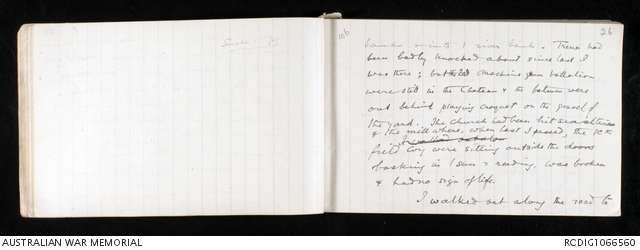 26
106
river bank. Treux had
been badly knocked about since last I
was there; but machine gun battalion
were still in the Chateau & the batmen were
out behind playing croquet on the gravel of
the yard. The church had been hit several times
& the mill where, when last I passed, the 10th
field Coy were sitting outside the doors
basking in / sun & reading, was broken
& had no sign of life.
I walked out along the road to
AUSTRALIAN WAR MEMORIAL
RCDIG1066560